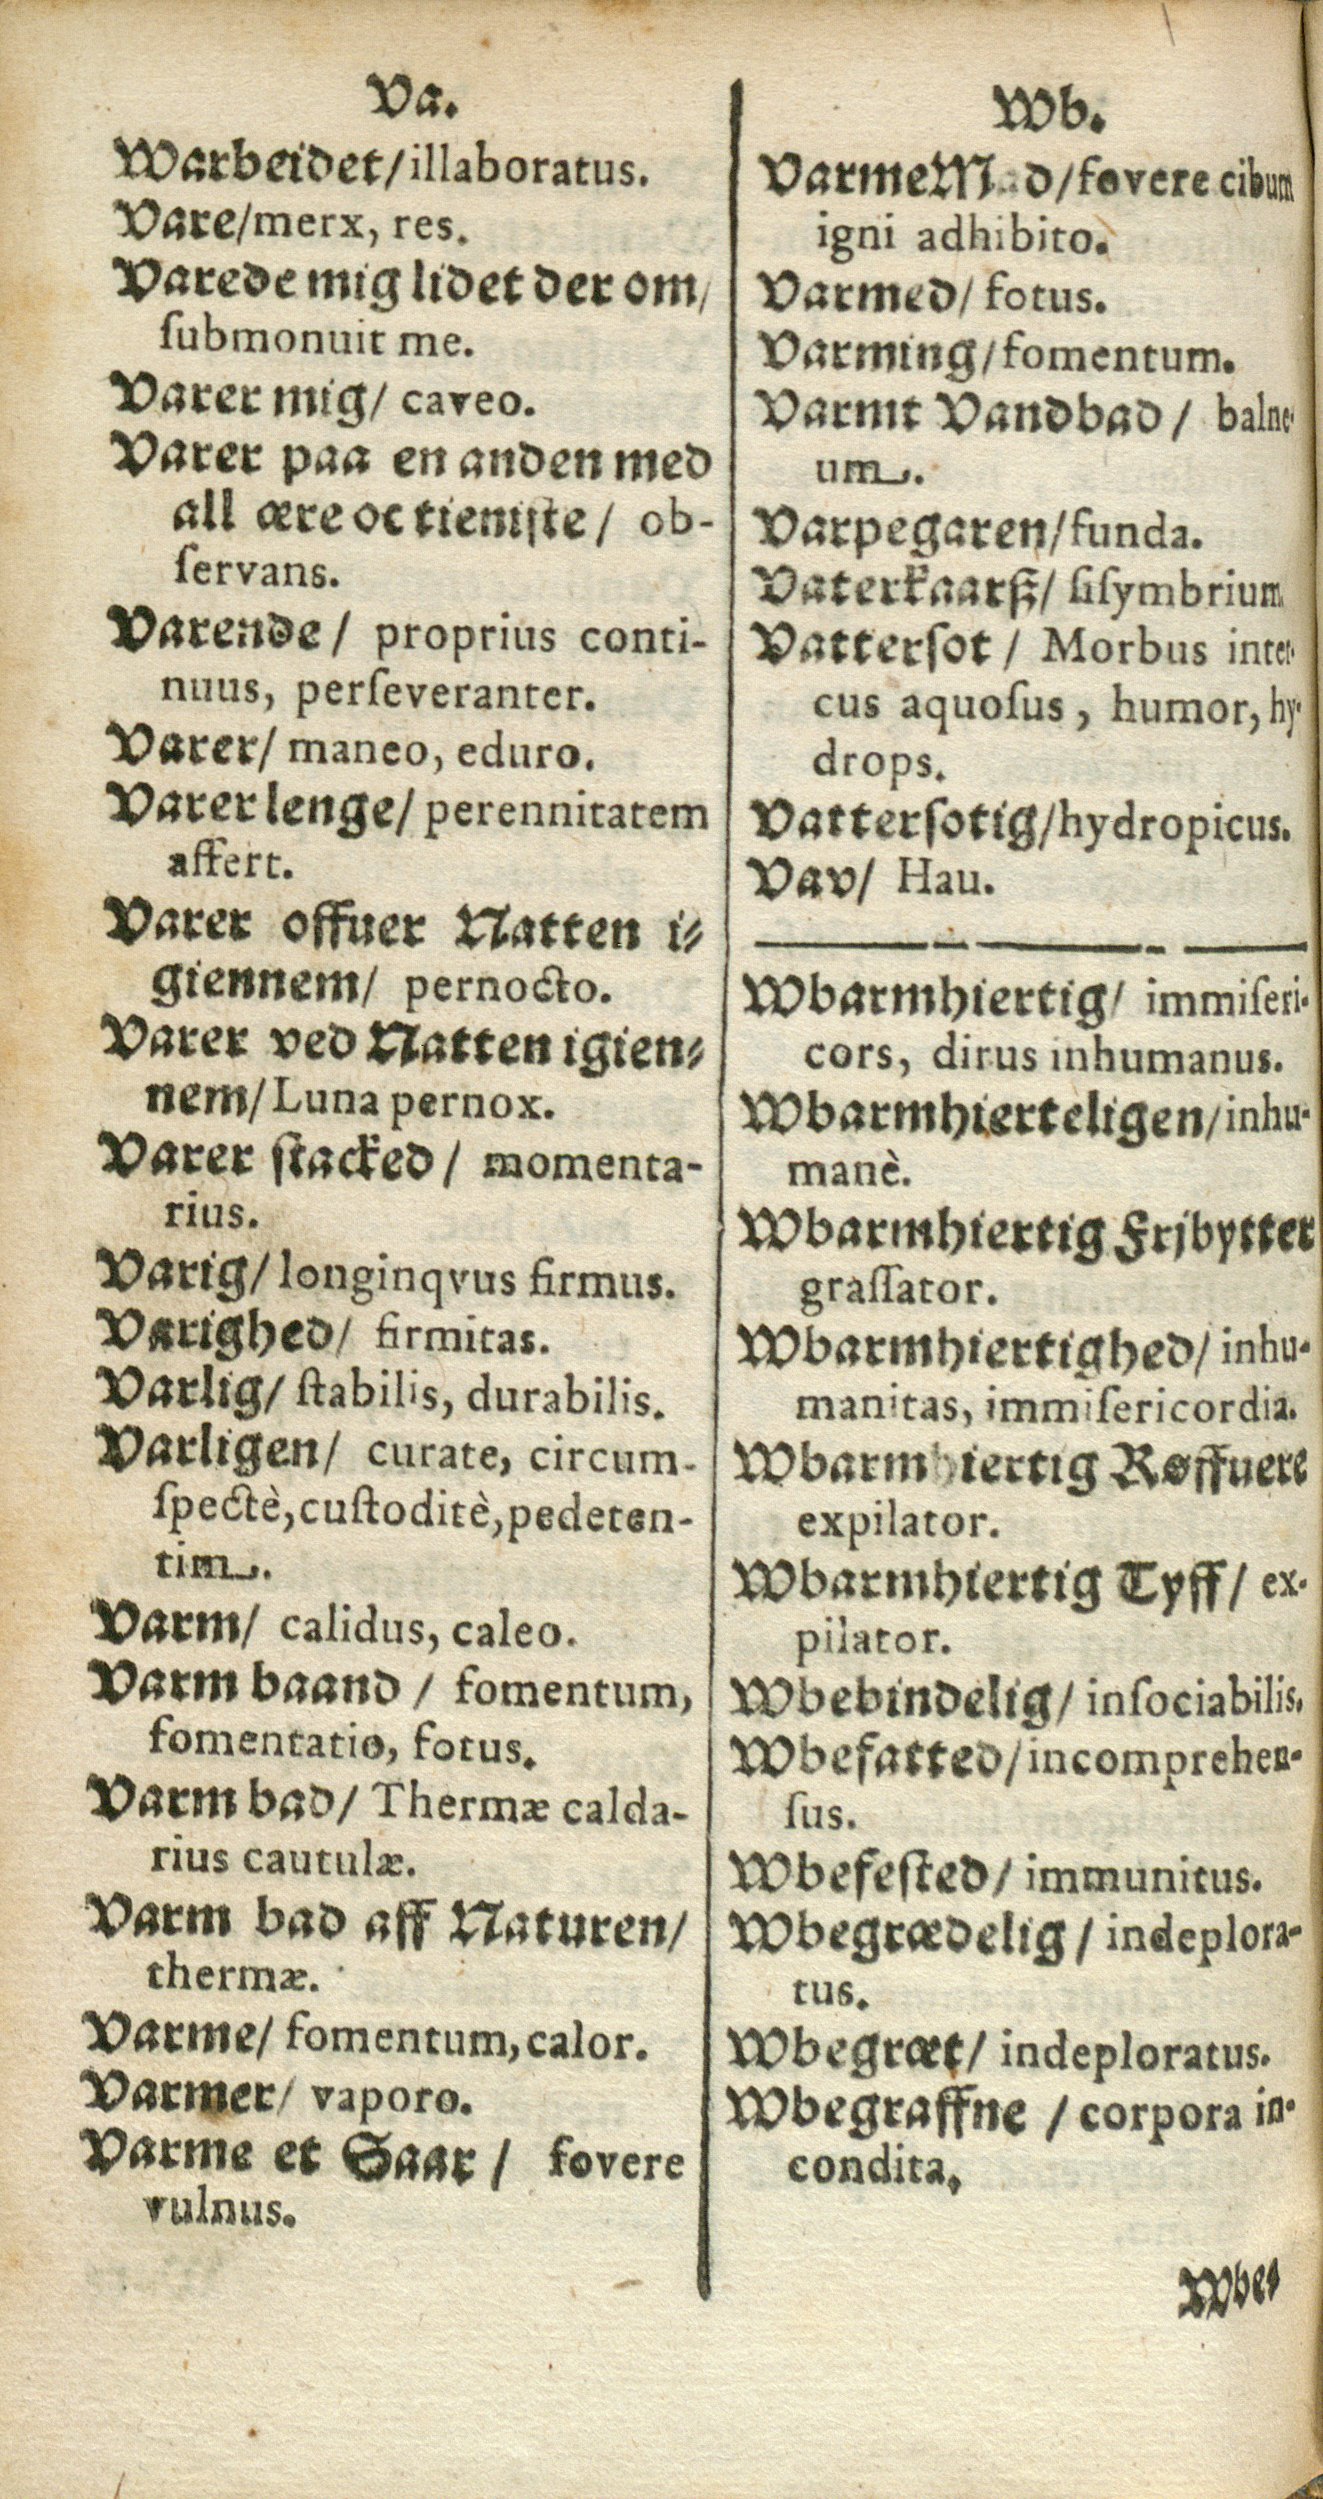 Va.
Warbeidet/illaboratus.
Vare/merx, res.
Varede mig lidet der om/
ſubmonuit me.
Varer mig/ caveo.
Varer paa en anden med
all ære oc tieniſte/ ob-
ſervans.
Varende/ proprius conti-
nuus, perſeveranter.
Varer/ maneo, eduro.
Varer lenge/ perennitatem
affert.
Varer offuer Natten i⸗
giennem/ pernocto.
Varer ved Natten igien⸗
nem/Luna pernox.
Varer ſtacked/ momenta-
rius.
Varig/ longinqvus firmus.
Varighed/ firmitas.
Varlig/ ſtabilis, durabilis.
Varligen/ curate, circum-
ſpectè,cuſtoditè,pedeten-
tim.
Varm/ calidus, caleo.
Varm baand / fomentum,
fomentatio, fotus.
Varm bad/ Thermæ calda-
rius cautulæ.
Varm bad aff Naturen/
thermæ.
Varme/ fomentum,calor.
Varmer/ vaporo.
Varme et Saar / fovere
vulnus.
Wb.
Varme Mad/fovere cibum
igni adhibito.
Varmed/ fotus.
Varming/fomentum.
Varmt Vandbad / balne-
um.
Varpegaren/funda.
Vaterkaarß/ ſiſymbrium
Vatterſot / Morbus inter-
cus aquoſus, humor, hy-
drops.
Vatterſotig/hydropicus.
Vav/ Hau.
Wbarmhiertig/ immiſeri-
cors, dirus inhumanus.
Wbarmhierteligen/inhu-
manè.
Wbarmhiertig Frjbytter
graſſator.
Wbarmhiertighed/ inhu-
manitas, immiſericordia.
Wbarmhiertig Røffuere
expilator.
Wbarmhiertig Tyff/ ex-
pilator.
Wbebindelig/ inſociabilis.
Wbefatted/incomprehen-
ſus.
Wbefeſted/ immunitus.
Wbegrædelig/ indeplora-
tus.
Wbegræt/ indeploratus.
Wbegraffne / corpora in-
condita.
Wbe⸗